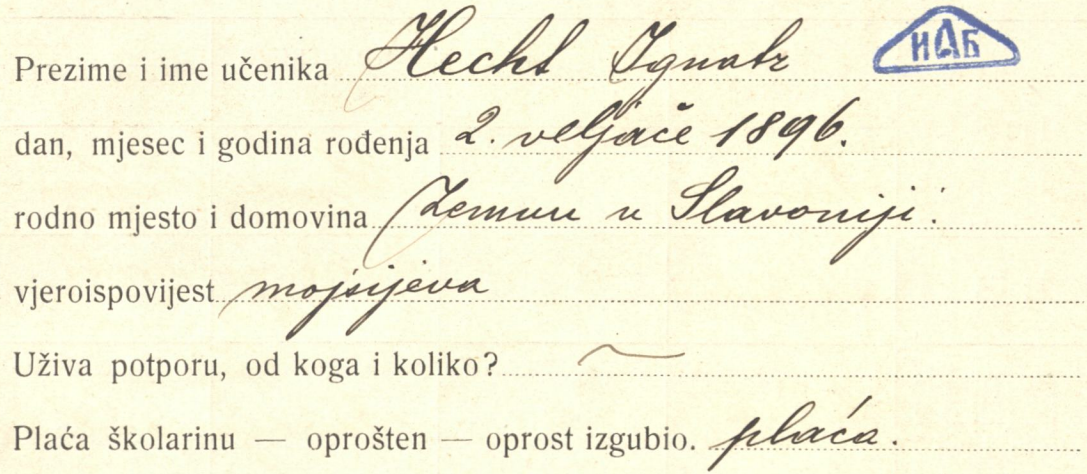 Prezime i ime učenika Hecht Ignatz
ИАБ
dan, mjesec i godina rođenja 2. veljače 1896.
rodno mjesto i domovina Zemun u Slavoniji.
vjeroispovijest mojsijeva
Uživa potporu, od koga i koliko? —
Plaća školarinu — oprošten — oprost izgubio. plaća.